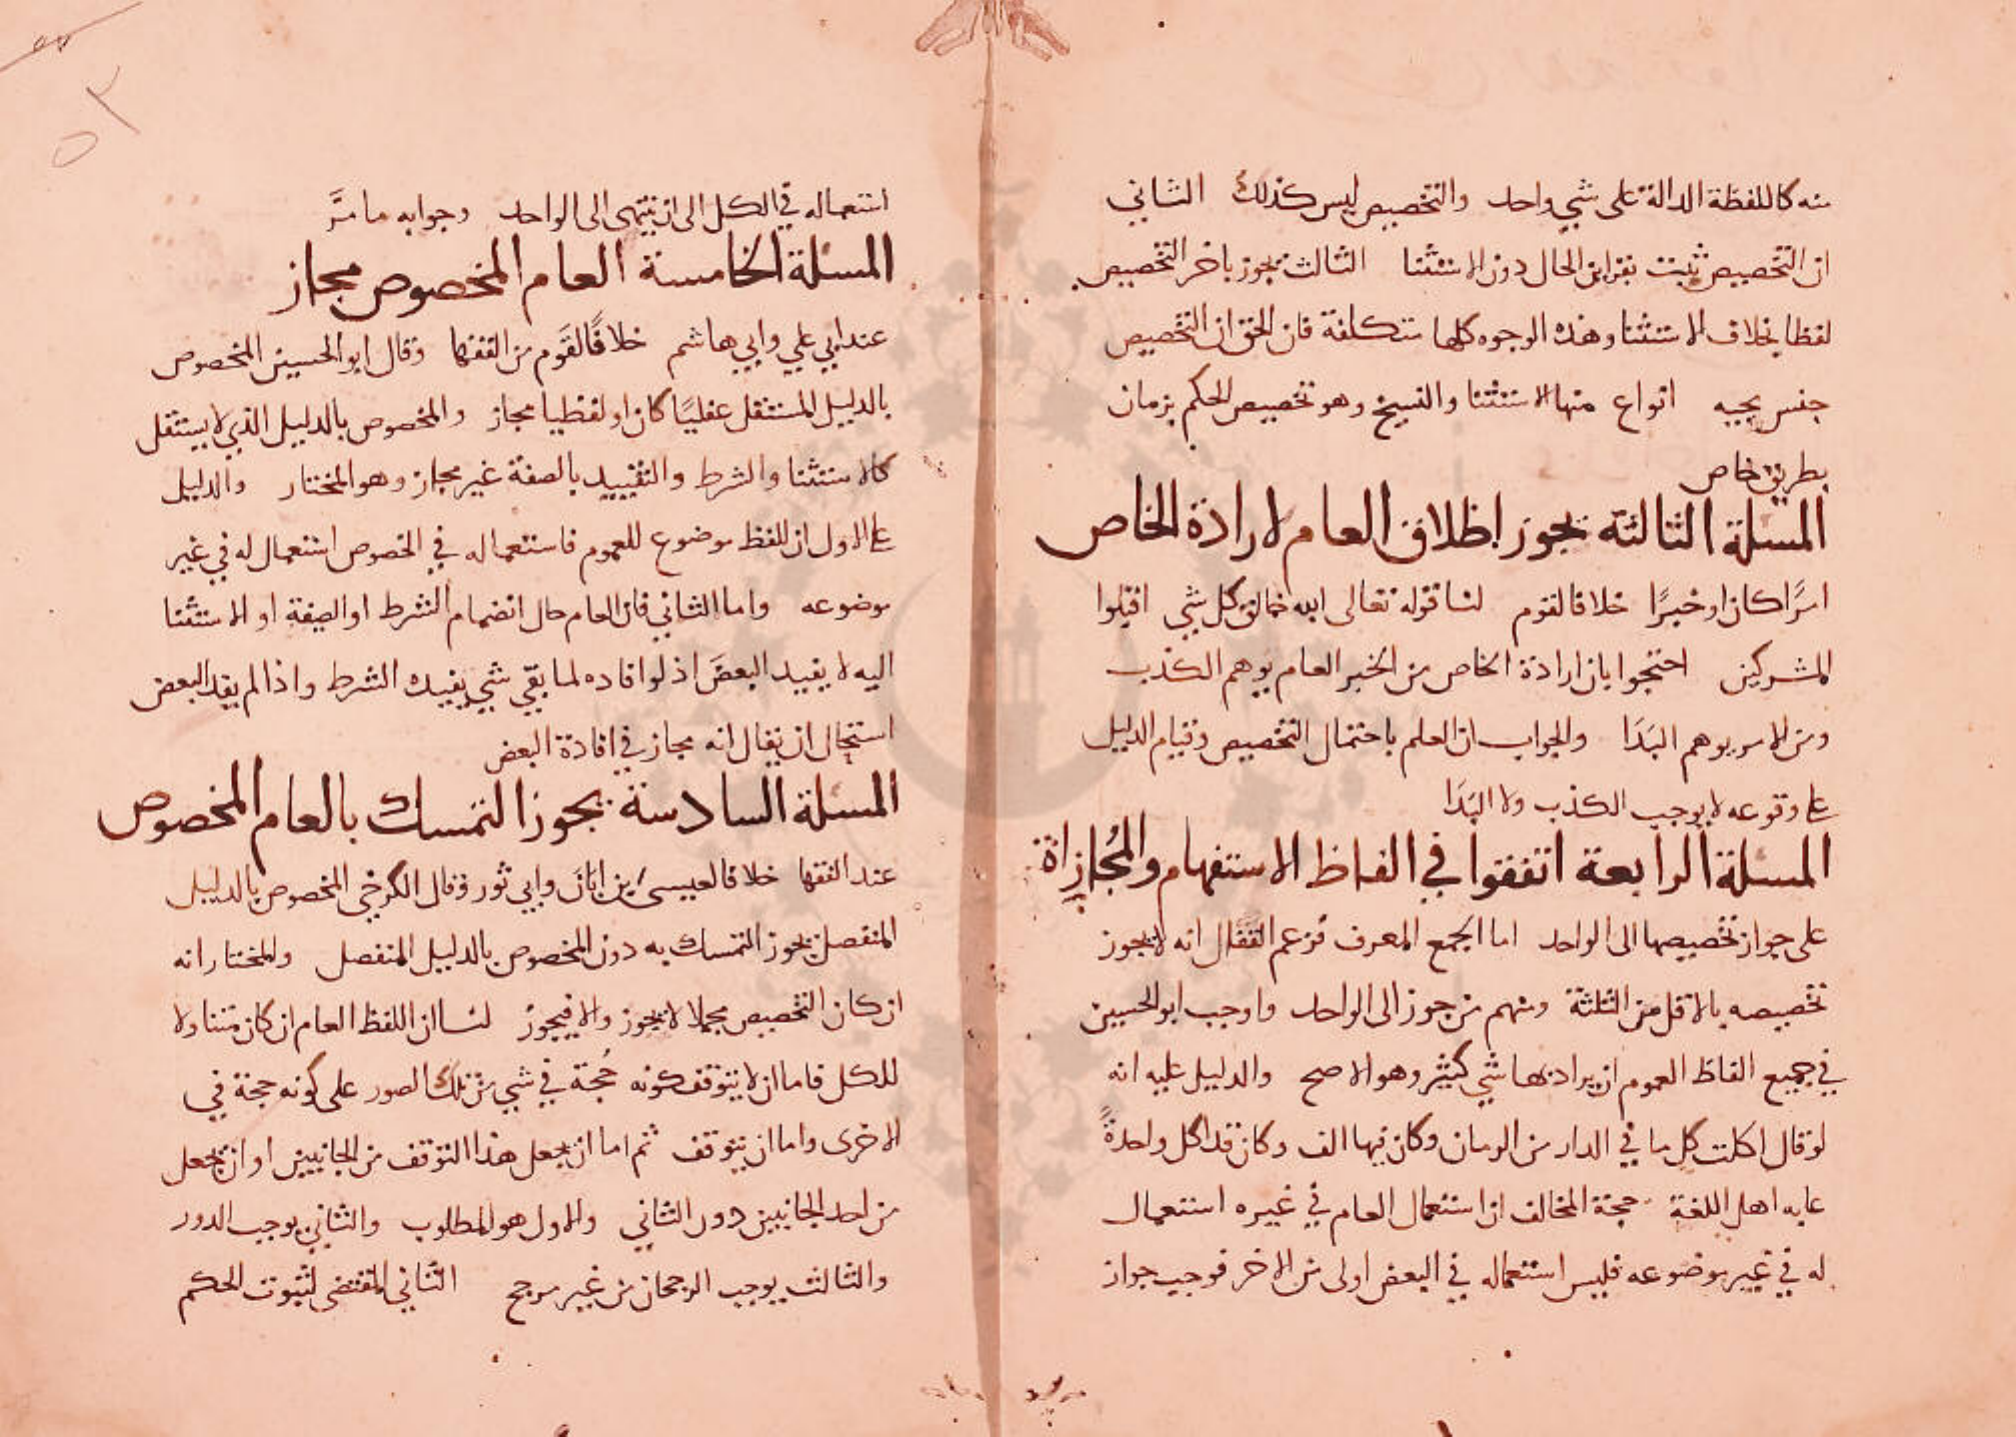 منه كاللفظة الدالة على شي واحد والتخصيص ليس كذلك الثاني
ان التخصيص ثبت بقراين الحال دون الاستثنا الثالث يجوز تاخر التخصيص
لفظا بخلاف الاستثنا وهذه الوجوه كلها متكلفة فان الحق ان التخصيص
جنس تحته انواع منها الاستثنا والنسخ وهو تخصيص الحكم بزمان
بطريق خاص
المسلة الثالثة يجوز اطلاق العام لارادة الخاص
امرًا كان او خبرًا خلافا لقوم لنا قوله تعالى الله خالق كل شي اقتلوا
المشركين احتجوا بان ارادة الخاص من الخبر العام يوهم الكذب
ومن الامر يوهم البَدَا والجواب ان العلم باحتمال التخصيص وقيام الدليل
على وقوعه لا يوجب الكذب ولا البَدَا
المسلة الرابعة اتفقوا في الفاظ الاستفهام والمُجازاة
على جواز تخصيصها الى الواحد اما الجمع المعرف فزعم القفال انه لا يجوز
تخصيصه بالاقل من الثلثة ومنهم من جوز الى الواحد واوجب ابو الحسين
في جميع الفاظ العموم ان يراد بها شي كثير وهو الاصح والدليل عليه انه
لو قال اكلت كل ما في الدار من الرمان وكان فيها الف وكان قد اكل واحدةً
عابه اهل اللغة حجة المخالف ان استعمال العام في غيره استعمال
له في غير موضوعه فليس استعماله في البعض اولى من الاخر فوجب جواز
٥٣
استعماله في الكل الى ان ينتهى الى الواحد وجوابه ما مَرَّ
المسلة الخامسة العام المخصوص مجاز
عند ابي علي وابي هاشم خلافًا لقَوم من الفقها وقال ابو الحسين المخصوص
بالدليل المستقل عقليًا كان او لفظيا مجاز والمخصوص بالدليل الذي لا يستقل
كالاستثنا والشرط والتقييد بالصفة غير مجاز وهو المختار والدليل
على الاول ان اللفظ موضوع للعموم فاستعماله في الخصوص استعمال له في غير
موضوعه واما الثاني فان العام حال انضمام الشرط او الصفة او الاستثنا
اليه لا يفيد البعضَ اذ لو افاده لما بقّي شي يفيده الشرط واذا لم يفد البعض
استحال ان يقال انه مجاز في افادة البعض
المسلة السادسة يجوز التمسك بالعام المخصوص
عند الفقها خلافا لعيسى بن ابَان وابي ثور وقال الكرخي المخصوص بالدليل
المتفصل يجوز التمسك به دون المخصوص بالدليل المنفصل والمختار انه
ان كان التخصيص مجملا لا يجوز والا فيجوز لنا ان اللفظ العام ان كان متناولا
للكل فاما ان لا يتوقف كونه حُجة في شي من تلك الصور على كونه حجة في
الاخرى واما ان يتوقف ثم اما ان يجعل هذا التوقف من الجانبين او ان يجعل
من احد الجانبين دون الثاني والاول هو المطلوب والثاني يوجب الدور
والثالث يوجب الرجحان من غير مرجح الثاني المقتضى لثبوت الحكم